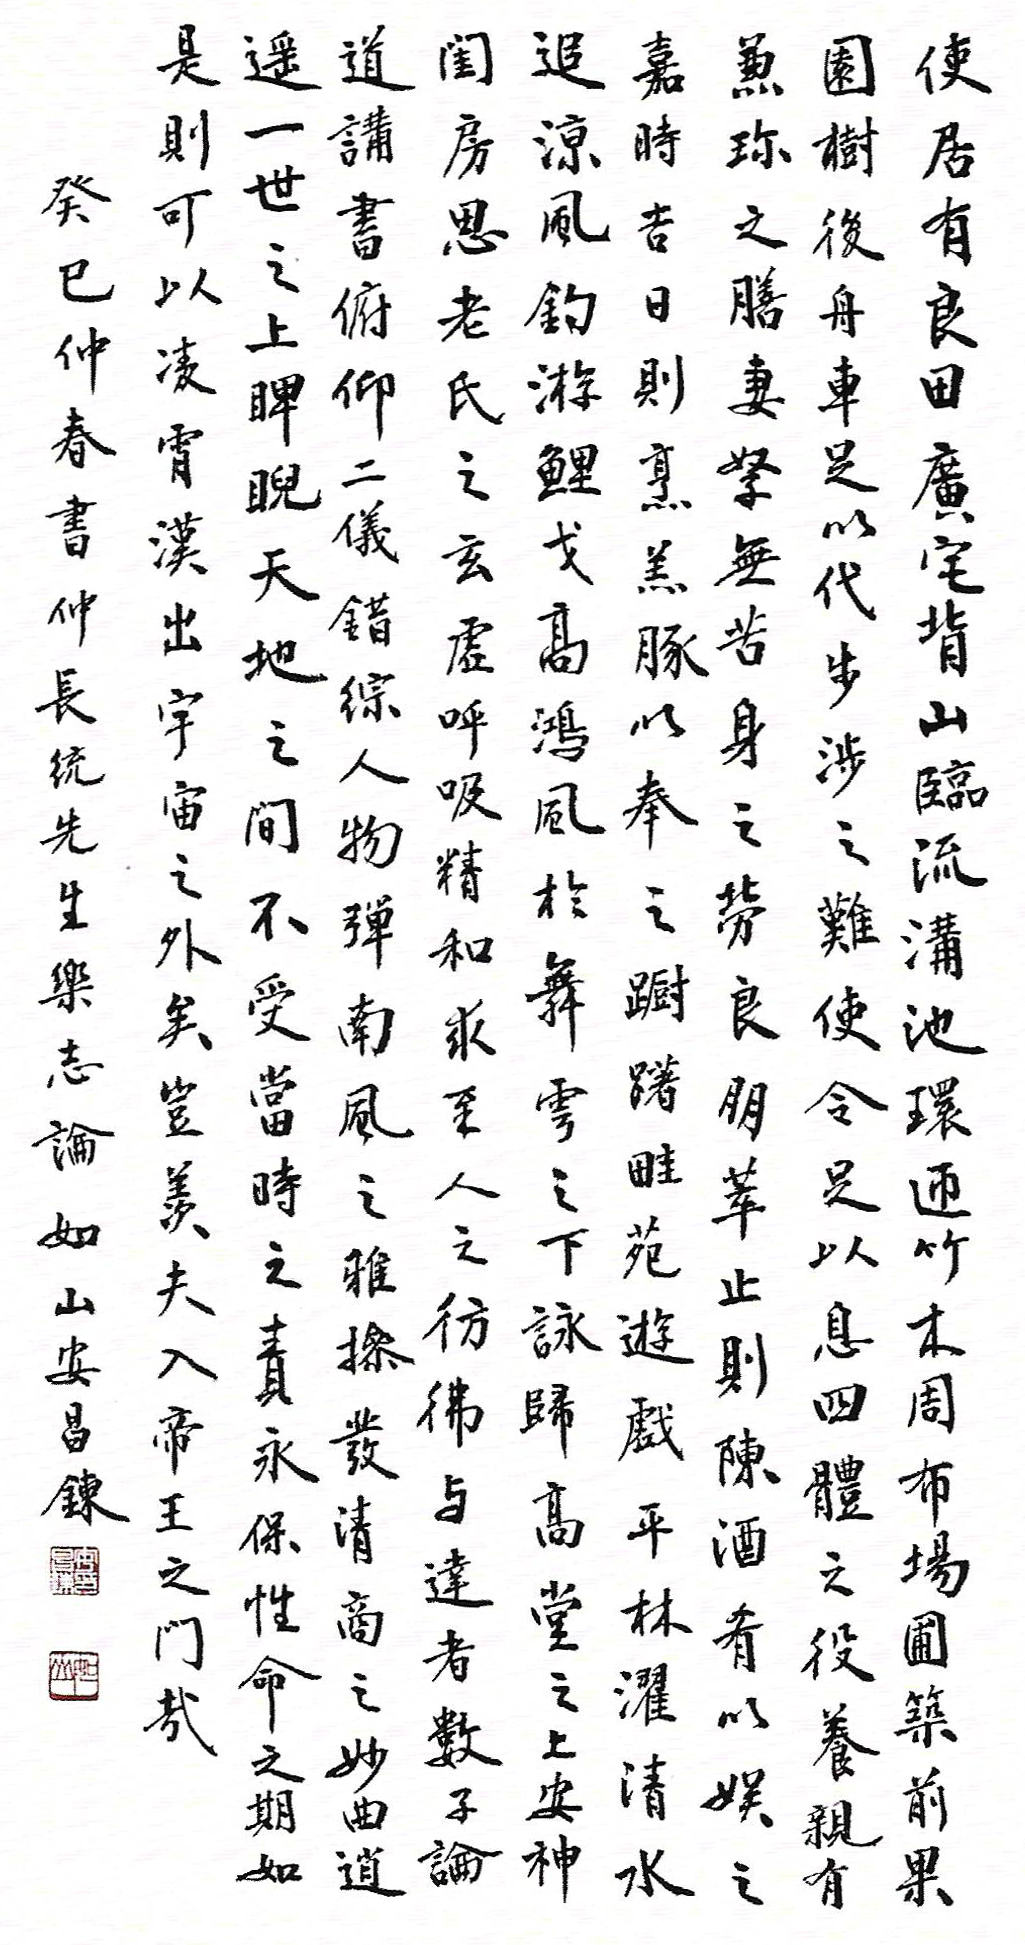 使居有良田廣宅背山臨流溝池環匝竹木周布場圃築前果
園樹後舟車足以代步涉之難使令足以息四體之役養親有
兼珍之膳妻孥無苦身之勞良朋萃止則陳酒肴以娛之
嘉時吉日則烹羔豚以奉之躕躇畦苑遊戲平林濯清水
追涼風釣游鯉弋高鴻風於舞雩之下詠歸高堂之上安神
閨房思老氏之玄虛呼吸精和求至人之彷彿与達者數子論
道講書俯仰二儀錯綜人物彈南風之雅操發清商之妙曲逍
遥一世之上睥睨天地之間不受當時之責永保性命之期如
是則可以凌霄漢出宇宙之外矣豈羨夫入帝王之門哉
癸巳仲春書仲長統先生樂志論如山安昌鍊